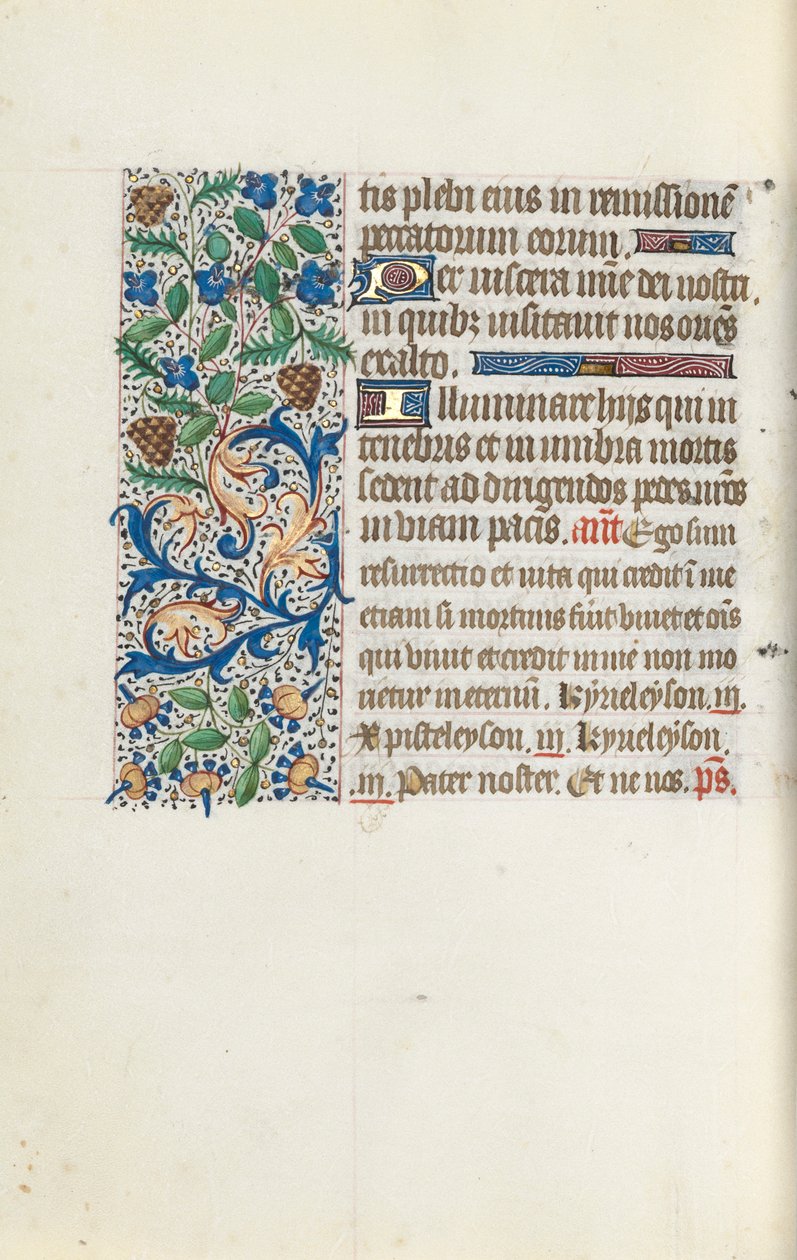 tis plebi eius in remissionē
peccatorum eorum.
Per viscera mīe dei nostri.
in quibꝫ visitavit nos oriēs
exalto.
Illuminare hijs qui in
tenebris et in umbra mortis
sedent ad dirigendos pedes nr̄os
in viam pacis. an̄t Ego sum
resurrectio et vita qui credit ī me
etiam si mortuus fūit vivet et oīs
qui vivit et credit in me non mo
rietur in eternū. Kyrieleyson. iij.
Xpisteleyson. iij. Kyrieleyson.
.iij. Pater noster. Et ne nos. ps̄.